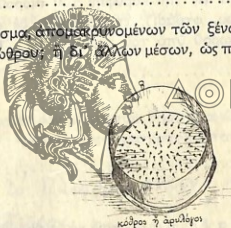 σμα, απομακρυνομένων τῶν ξένω
ώθρου; ἢ δι' ἄλλων μέσων, ὡς π
κόθρος ἢ ἀρυλόγος